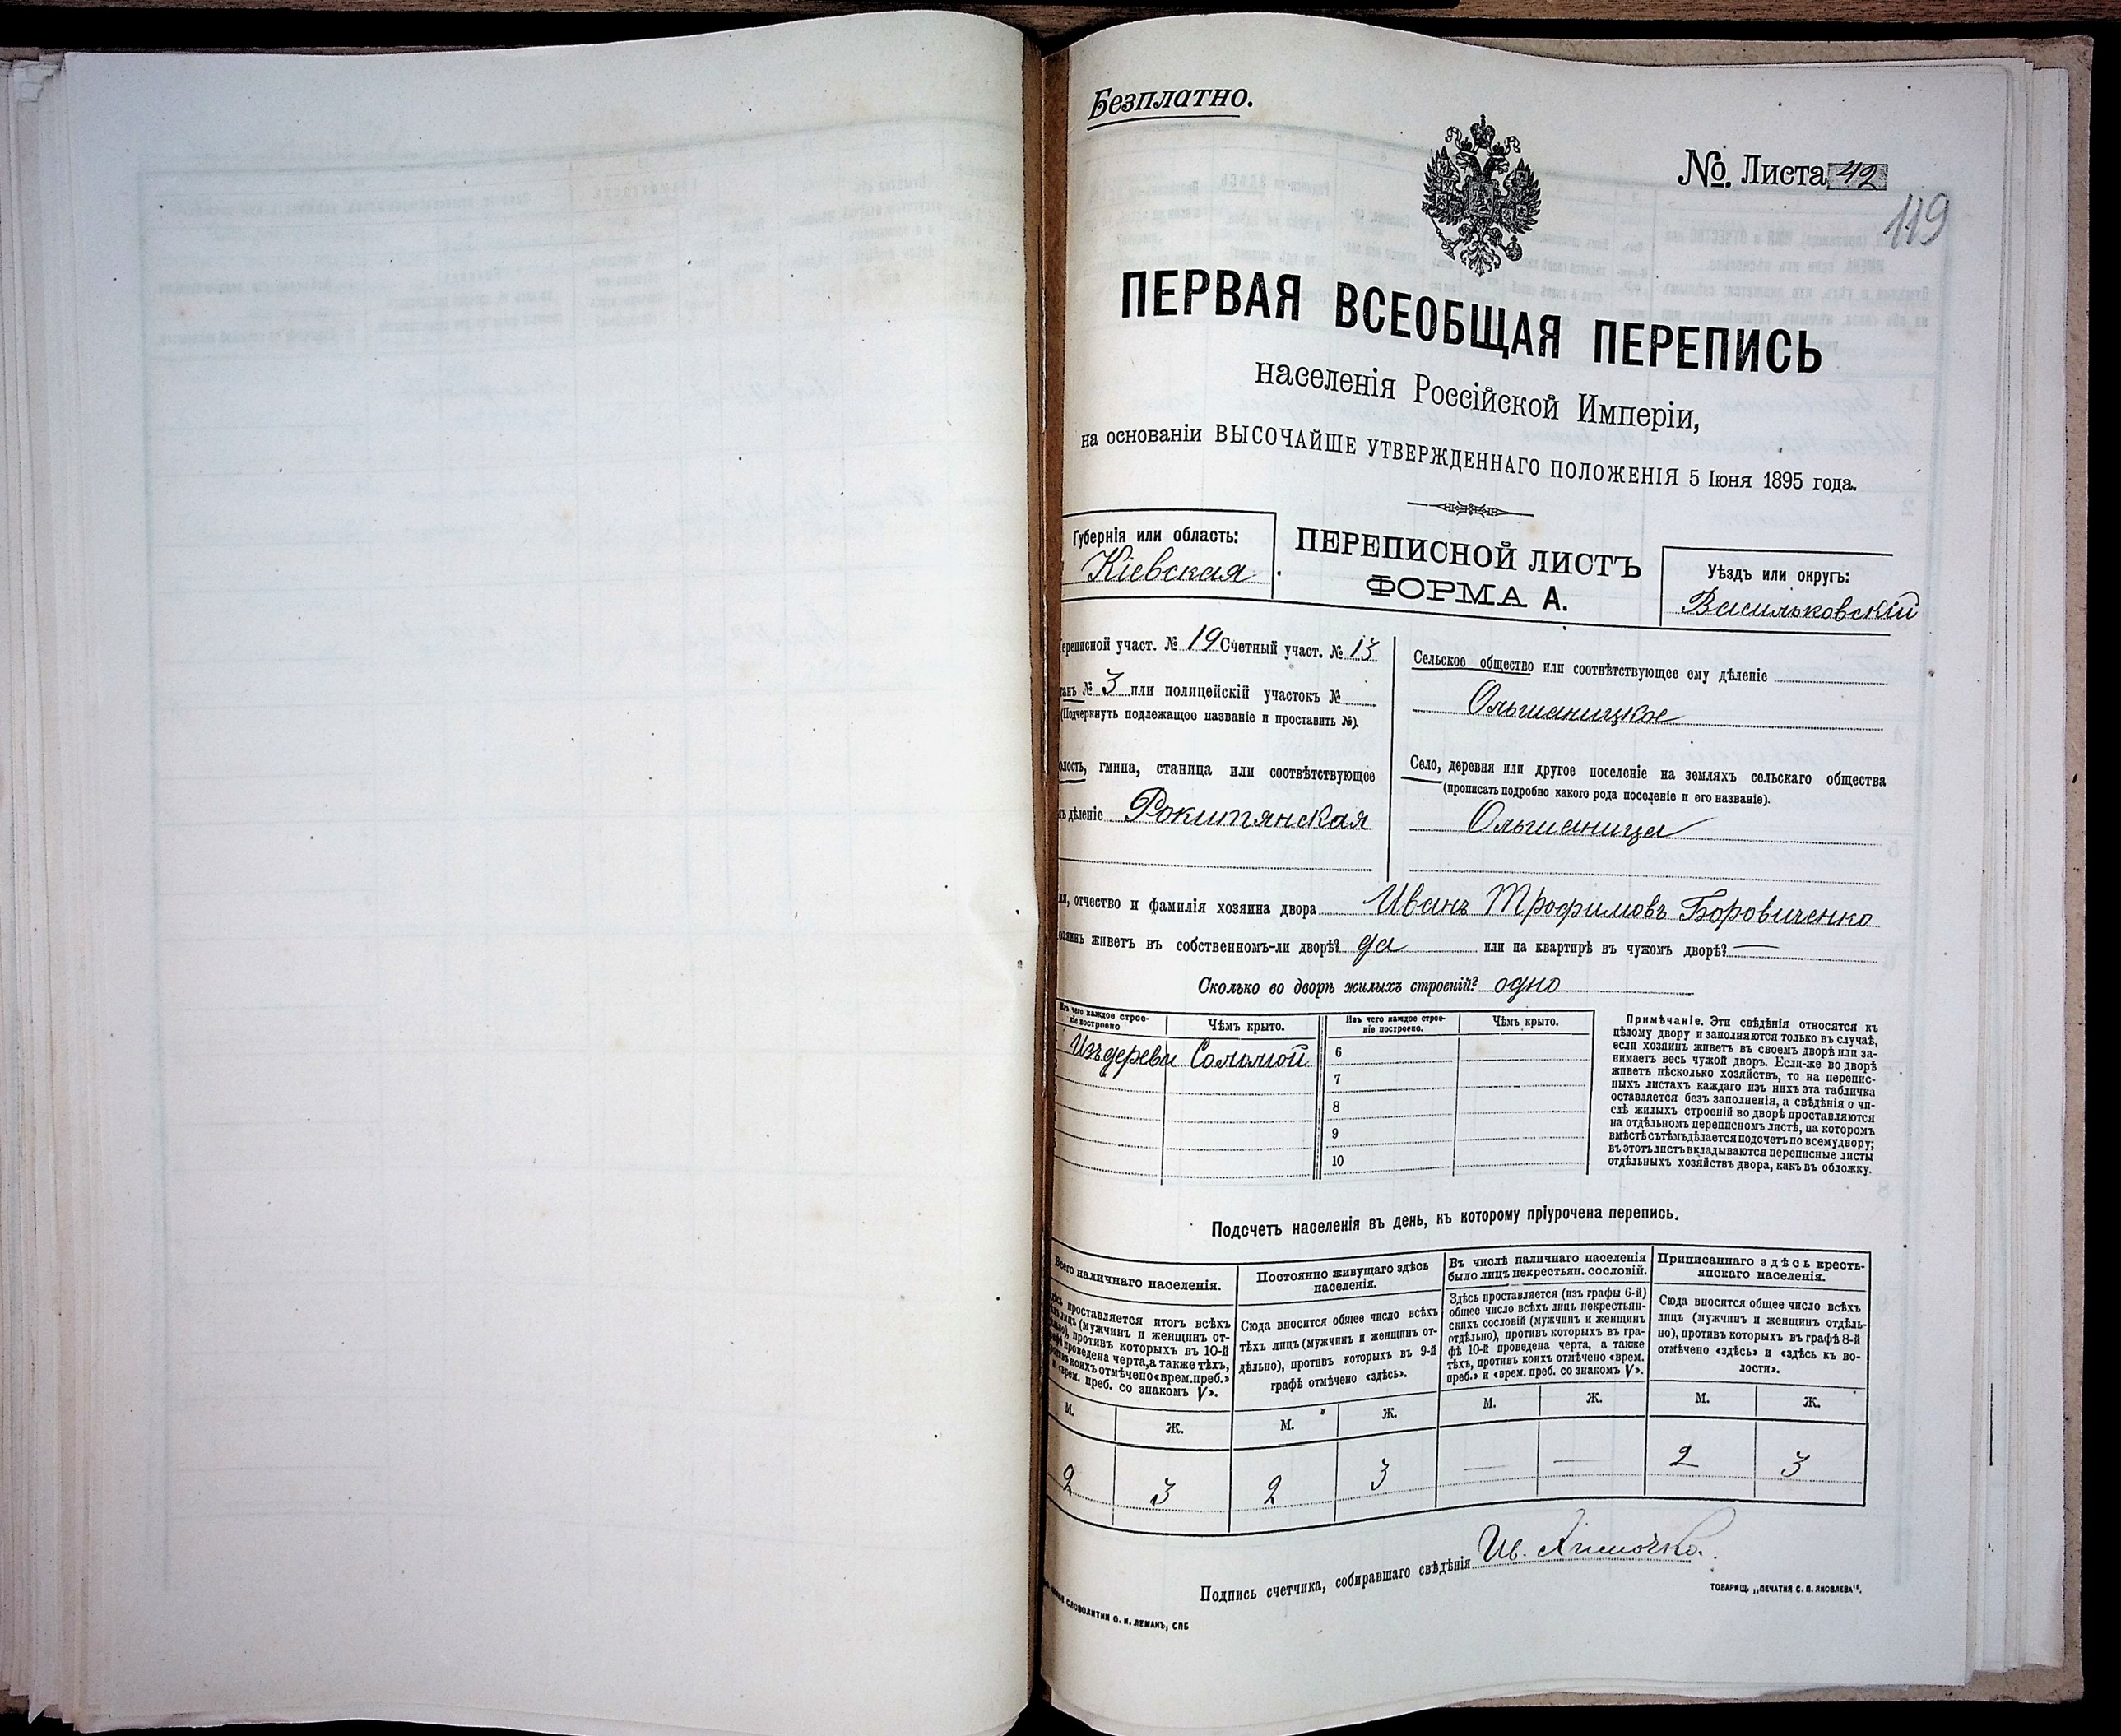 Безплатно.
№. Листа 42
119
ПЕРВАЯ ВСЕОБЩАЯ ПЕРЕПИСЬ
населенія Россійской Имперіи,
на основаніи ВЫСОЧАЙШЕ УТВЕРЖДЕННАГО ПОЛОЖЕНІЯ 5 Іюня 1895 года.
Губернія или область:
Кіевская
ПЕРЕПИСНОЙ ЛИСТЪ
ФОРМА А.
Уѣздъ или округъ:
Васильковскій
ереписной участ. № 19 Счетный участ. № 13
танъ № 3 или полицейскій участокъ №
(Подчеркнуть подлежащее названіе и проставить №).
олость, гмина, станица или соотвѣтствующее
ъ дѣленіе Рокитянская
Сельское общество или соотвѣтствующее ему дѣленіе
Ольшаницкое
Село, деревня или другое поселеніе на земляхъ сельскаго общества
(прописать подробно какого рода поселеніе и его названіе).
Ольшаница
мя, отчество и фамилія хозяина двора Иванъ Трофимовъ Боровиченко
озяинъ живетъ въ собственномъ-ли дворѣ? да или на квартирѣ въ чужомъ дворѣ? —
Сколько во дворѣ жилыхъ строеній? одно
Изъ чего каждое строе-
ніе построено
Чѣмъ крыто.
Изъ чего каждое строе-
ніе построено.
Чѣмъ крыто.
Изъ дерева Соломой
6
7
8
9
10
Примѣчаніе. Эти свѣдѣнія относятся къ
цѣлому двору и заполняются только въ случаѣ,
если хозяинъ живетъ въ своемъ дворѣ или за-
нимаетъ весь чужой дворъ. Если-же во дворѣ
живетъ нѣсколько хозяйствъ, то на перепис-
ныхъ листахъ каждаго изъ нихъ эта табличка
оставляется безъ заполненія, а свѣдѣнія о чи-
слѣ жилыхъ строеній во дворѣ проставляются
на отдѣльномъ переписномъ листѣ, на которомъ
вмѣстѣ съ тѣмъ дѣлается подсчетъ по всему двору;
въ этотъ листъ вкладываются переписные листы
отдѣльныхъ хозяйствъ двора, какъ въ обложку.
Подсчетъ населенія въ день, къ которому пріурочена перепись.
Всего наличнаго населенія.
здѣсь проставляется итогъ всѣхъ
ѣхъ лицъ (мужчинъ и женщинъ от-
льно), противъ которыхъ въ 10-й
рафѣ проведена черта, а также тѣхъ,
ротивъ коихъ отмѣчено «врем. преб.»
и «врем. преб. со знакомъ V».
Постоянно живущаго здѣсь
населенія.
Сюда вносится общее число всѣхъ
тѣхъ лицъ (мужчинъ и женщинъ от-
дѣльно), противъ которыхъ въ 9-й
графѣ отмѣчено «здѣсь».
Въ числѣ наличнаго населенія
было лицъ некрестьян. сословій.
Здѣсь проставляется (изъ графы 6-й)
общее число всѣхъ лицъ некрестьян-
скихъ сословій (мужчинъ и женщинъ
отдѣльно), противъ которыхъ въ гра-
фѣ 10-й проведена черта, а также
тѣхъ, противъ коихъ отмѣчено «врем.
преб.» и «врем. преб. со знакомъ V».
Приписаннаго здѣсь кресть-
янскаго населенія.
Сюда вносится общее число всѣхъ
лицъ (мужчинъ и женщинъ отдѣль-
но), противъ которыхъ въ графѣ 8-й
отмѣчено «здѣсь» и «здѣсь къ во-
лости».
М. Ж. М. Ж. М. Ж. М. Ж.
2 3 2 3 — — 2 3
Подпись счетчика, собиравшаго свѣдѣнія Ив.
словолитни О. И. ЛЕМАНЪ, СПБ
ТОВАРИЩ. „ПЕЧАТНЯ С. П. ЯКОВЛЕВА“.